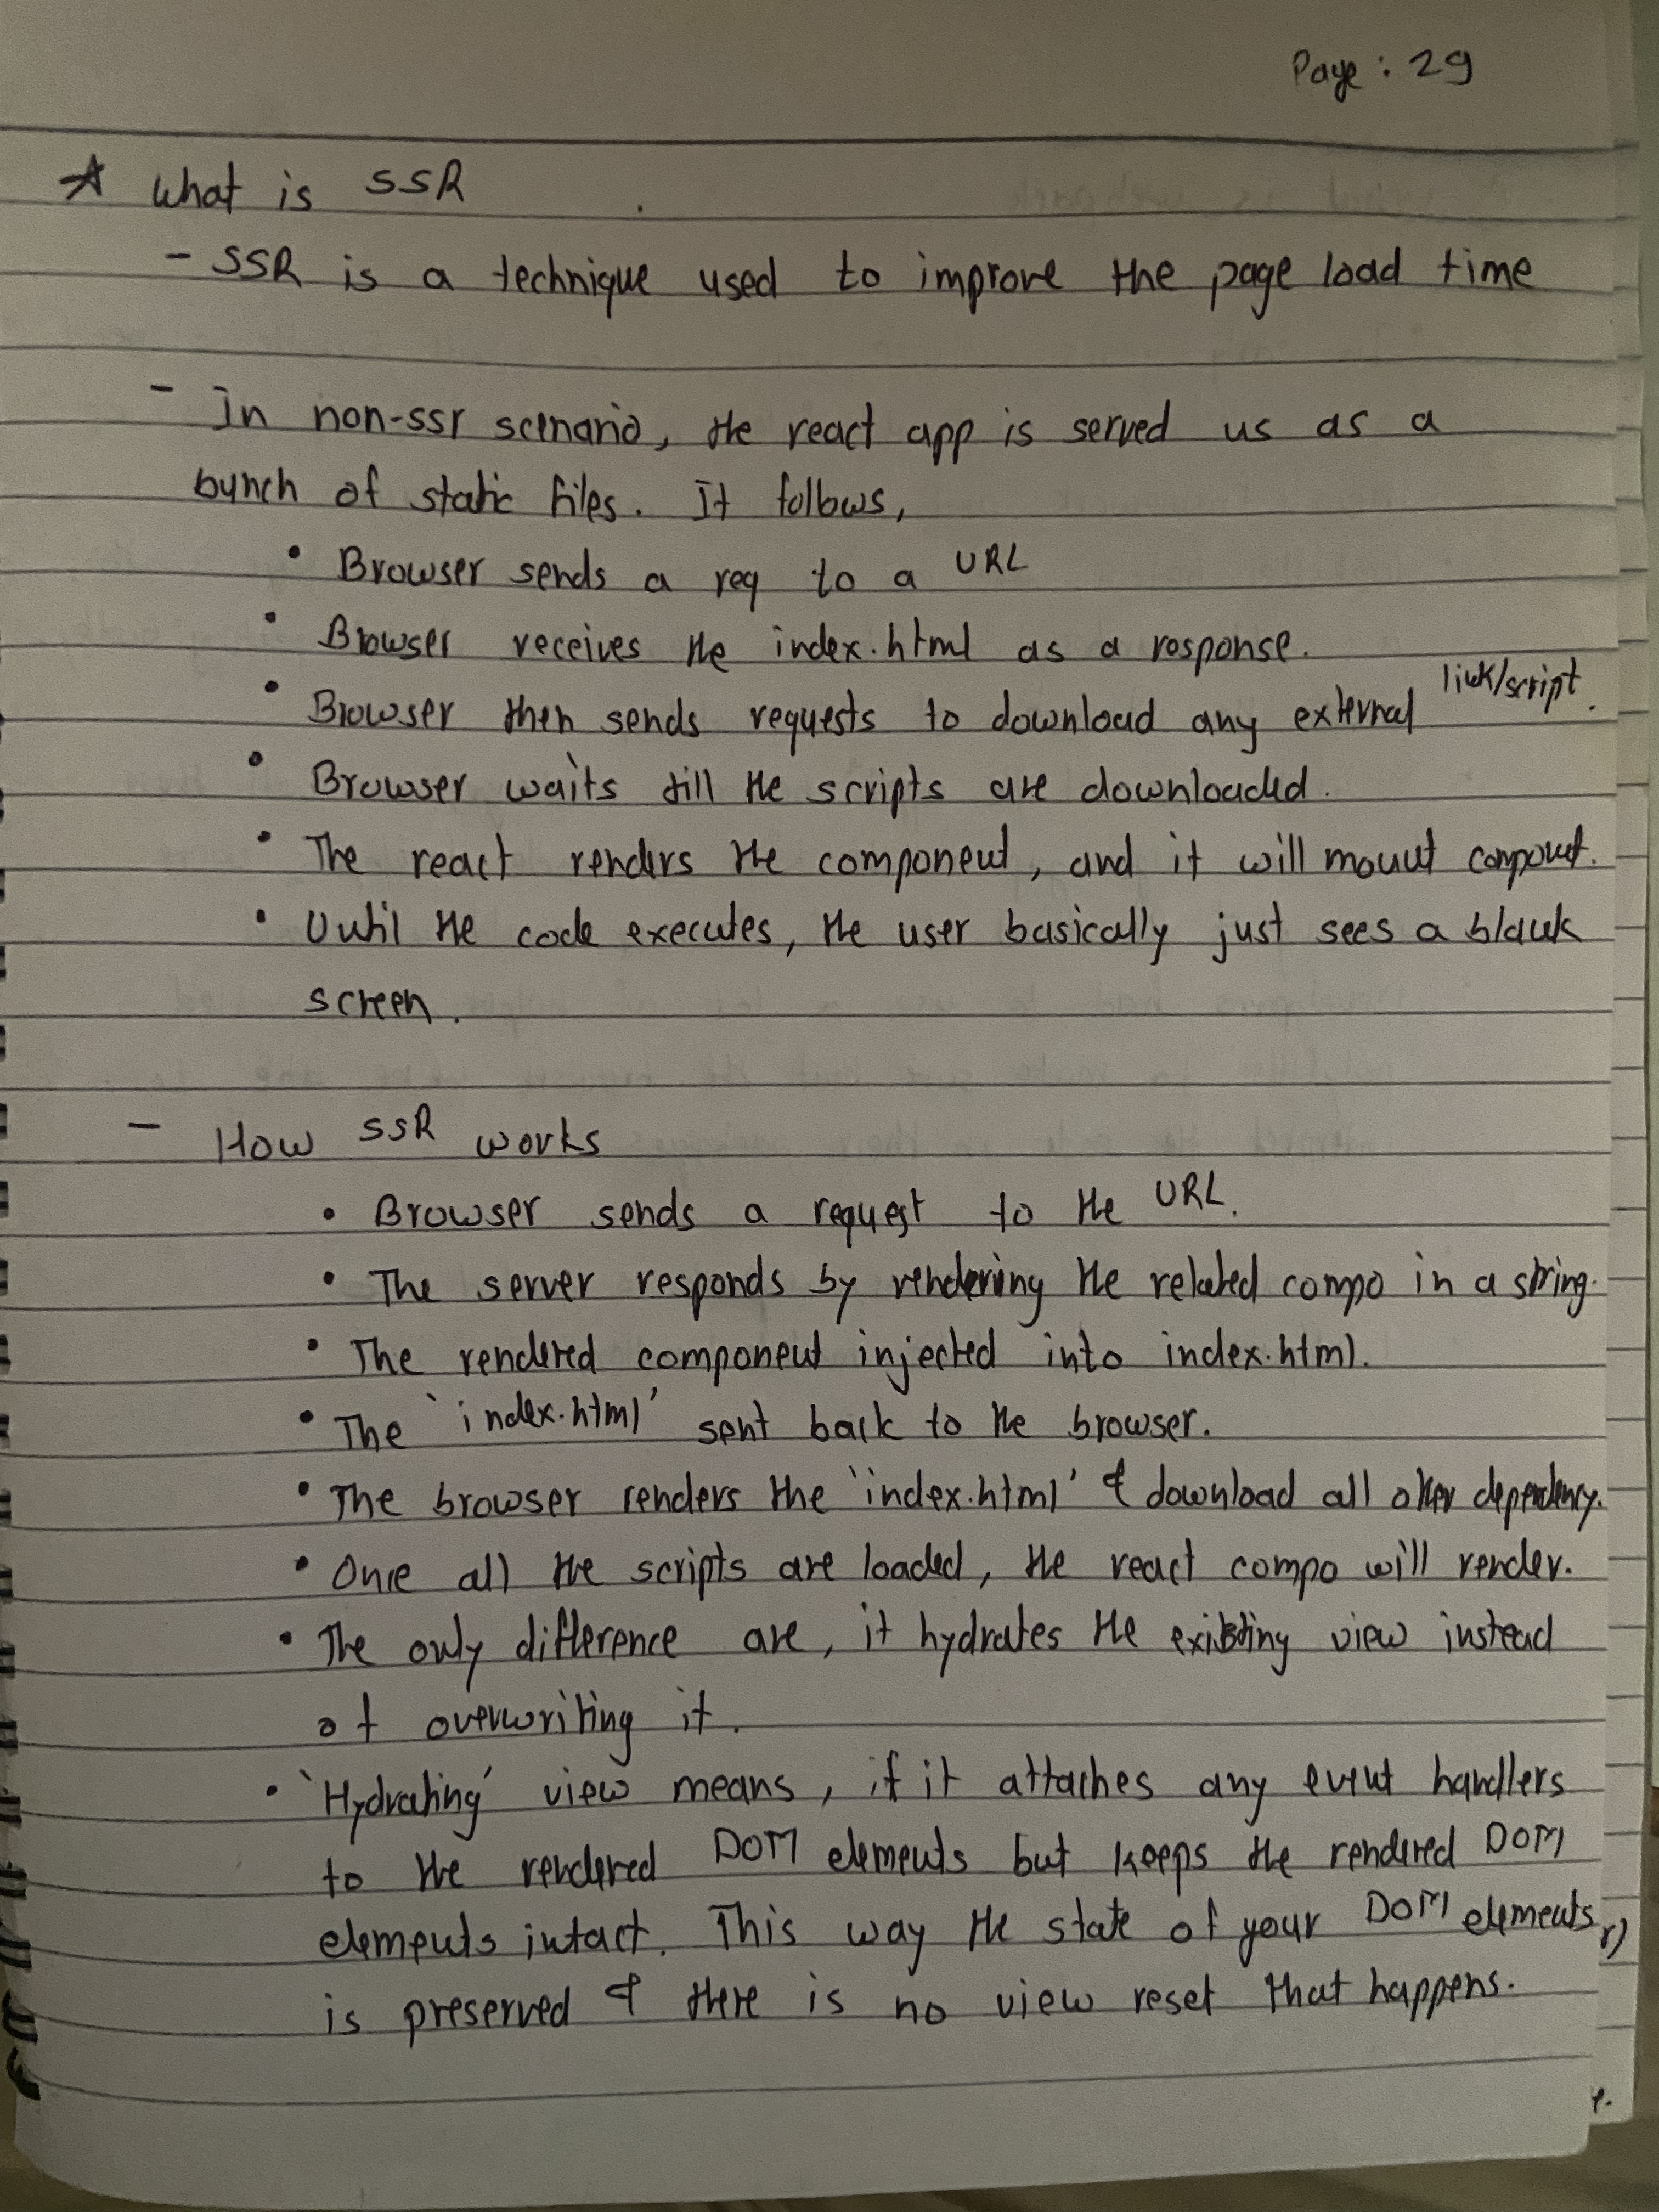 Page : 29
☆ What is SSR
- SSR is a technique used to improve the page load time
- In non-ssr scenario, the react app is served us as a
bunch of static files. It follows,
• Browser sends a req to a URL
• Browser receives the index.html as a response.
• Browser then sends requests to download any external link/script.
• Browser waits till the scripts are downloaded.
• The react renders the component, and it will mount component.
• Until the code executes, the user basically just sees a blank
screen.
- How SSR works
• Browser sends a request to the URL.
• The server responds by rendering the related compo in a string.
• The rendered component injected into index.html.
• The `index.html' sent back to the browser.
• The browser renders the `index.html' & download all other dependency.
• Once all the scripts are loaded, the react compo will render.
• The only difference are, it hydrates the existing view instead
of overwriting it.
• `Hydrating' view means, if it attaches any event handlers
to the rendered DOM elements but keeps the rendered DOM
elements intact. This way the state of your DOM elements
is preserved & there is no view reset that happens.